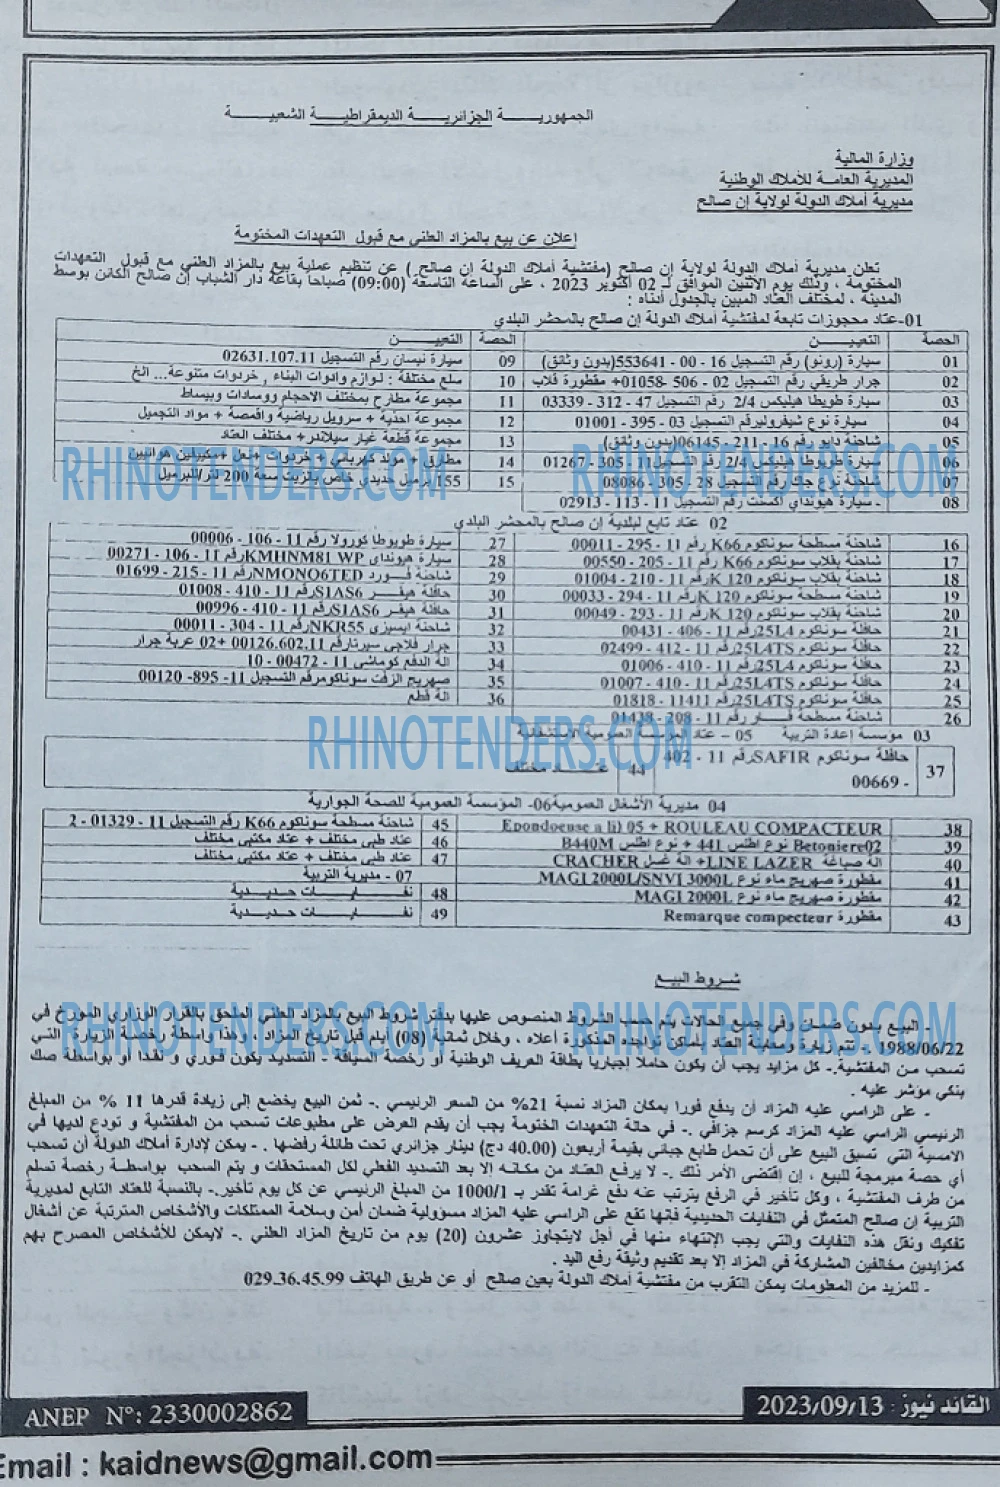 الجمهوريـــة الجزائريـــة الديمقراطيـــة الشعبيـــة
وزارة المالية
المديرية العامـــة للأملاك الوطنية
مديرية أملاك الدولة لولاية إن صالح
إعلان عن بيع بالمزاد العلني مع قبول التعهدات المختومة
تعلن مديرية أملاك الدولة لولاية إن صالح (مفتشية أملاك الدولة إن صالح ) عن تنظيم عملية بيع بالمزاد العلني مع قبول التعهدات
المختومة ، وذلك يوم الاثنين الموافق لـ 02 أكتوبر 2023 ، على الساعة التاسعة (09:00) صباحا بقاعة دار الشباب إن صالح الكائن بوسط
المدينة ، لمختلف العتاد المبين بالجدول أدناه :
01-عتاد محجوزات تابعة لمفتشية أملاك الدولة إن صالح بالمحشر البلدي
الحصة التعييـــن الحصة التعييـــن
01 سيارة (رونو) رقم التسجيل 16 - 00 - 553641(بدون وثائق) 09 سيارة نيسان رقم التسجيل 02631.107.11
02 جرار طريقي رقم التسجيل 02 - 506 -01058+ مقطورة قلاب 10 سلع مختلفة : لوازم وادوات البناء , خردوات متنوعة... الخ
03 سيارة طويطا هيليكس 2/4 رقم التسجيل 47 - 312 - 03339 11 مجموعة مطارح بمختلف الاحجام ووسادات وبيساط
04 سيارة نوع شيفروليررقم التسجيل 03 - 395 - 01001 12 مجموعة احذية + سرويل رياضية واقمصة + مواد التجميل
05 شاحنة دايو رقم 16 - 211 - 06145(بدون وثائق) 13 مجموعة قطعة غيار سيلاندر+ مختلف العتاد
06 سيارة طويوطا هيليكس 2/4 رقم التسجيل11 - 305 - 01267 14 مطارق + مولد كهربائي + خردوات +نعل +مكيفين هوائيين
07 شاحنة نوع جاك رقم التسجيل 28 - 305 - 08086 15 155 برميل حديدي خاص بالزيت سعة 200 لتر/للبرميل
08 - سيارة هيونداي اكسنت رقم التسجيل 11 - 113 - 02913
02 عتاد تابع لبلدية إن صالح بالمحشر البلدي
16 شاحنة مسطحة سوناكوم K66 رقم 11 - 295 - 00011 27 سيارة طويوطا كورولا رقم 11 -106 - 00006
17 شاحنة بقلاب سوناكوم K66 رقم 11 - 205 - 00550 28 سيارة هيونداي KMHNM81 WPرقم 11 - 106 - 00271
18 شاحنة بقلاب سوناكوم K 120رقم 11 - 210 - 01004 29 شاحنة فـــورد NMONO6TEDرقم 11 - 215 - 01699
19 شاحنة مسطحة سوناكوم K 120 رقم 11 - 294 - 00033 30 حافلة هيقـــر S1AS6رقم 11 - 410 - 01008
20 شاحنة بقلاب سوناكوم K 120رقم 11 - 293 - 00049 31 حافلة هيقر S1AS6رقم 11 - 410 - 00996
21 حافلة سوناكوم 25L4رقم 11 - 406 - 00431 32 شاحنة ايسيزي NKR55رقم 11 - 304 - 00011
22 حافلة سوناكوم 25L4TSرقم 11 - 412 - 02499 33 جرار فلاحي سيرتارقم 00126.602.11 +02 عربة جرار
23 حافلة سوناكوم 25L4رقم 11 - 410 - 01006 34 الة الدفع كوماشي 11 - 00472 - 10
24 حافلة سوناكوم 25L4TSرقم 11 - 410 - 01007 35 صهريج الزفت سوناكومرقم التسجيل 11- 895- 00120
25 حافلة سوناكوم 25L4TSرقم 11411 - 01818 36 الة قطع
26 شاحنة مسطحة فـــار رقم 11 - 208 - 01438
03 مؤسسة إعادة التربية 05 - عتاد المؤسسة العمومية الاستشفائية
37 حافلة سوناكوم SAFIRرقم 11 - 402 - 00669 44 عتـــاد مختلف
04 مديرية الأشغال العمومية 06- المؤسسة العمومية للصحة الجوارية
38 Epondoeuse a li) 05 + ROULEAU COMPACTEUR 45 شاحنة مسطحة سوناكوم K66 رقم التسجيل 11 - 01329 - 2
39 Betoniere02 نوع اطلس 44L + نوع اطلس B440M 46 عتاد طبي مختلف + عتاد مكتبي مختلف
40 الة صباغة LINE LAZER+ الة غسل CRACHER 47 عتاد طبي مختلف + عتاد مكتبي مختلف
41 مقطورة صهريج ماء نوع MAGI 2000L/SNVI 3000L 07 - مديرية التربية
42 مقطورة صهريج ماء نوع MAGI 2000L 48 نفـــايـــات حديـــدية
43 مقطورة Remarque compecteur 49 نفـــايـــات حديـــدية
شروط البيع
- البيع بدون ضمان وفي جميع الحالات يتم حسب الشروط المنصوص عليها بدفتر شروط البيع بالمزاد العلني الملحق بالقرار الوزاري المورخ في
1988/06/22 .- تتم زيارة ومعاينة العتاد بأماكن تواجده المذكورة أعلاه ، وخلال ثمانية (08) أيام قبل تاريخ المزاد ، وهذا واسطة رخصة الزيارة التي
تسحب من المفتشية.- كل مزايد يجب أن يكون حاملا إجباريا بطاقة التعريف الوطنية أو رخصة السياقة - التسديد يكون فوري و نقدا أو بواسطة صك
بنكي مؤشر عليه .
- على الراسي عليه المزاد أن يدفع فورا بمكان المزاد نسبة 21% من السعر الرئيسي .- ثمن البيع يخضع إلى زيادة قدرها 11 % من المبلغ
الرئيسي الراسي عليه المزاد كرسم جزافي .- في حالة التعهدات الختومة يجب أن يقدم العرض على مطبوعات تسحب من المفتشية و تودع لديها في
الامسية التي تسبق البيع على أن تحمل طابع جبائي بقيمة أربعون (40.00 دج) دينار جزائري تحت طائلة رفضها . - يمكن لإدارة أملاك الدولة أن تسحب
أي حصة مبرمجة للبيع ، إن إقتضى الأمر ذلك .- لا يرفع العتاد من مكانه الا بعد التسديد الفعلي لكل المستحقات و يتم السحب بواسطة رخصة تسلم
من طرف المفتشية ، وكل تأخير في الرفع يترتب عنه دفع غرامة تقدر بـ 1000/1 من المبلغ الرئيسي عن كل يوم تأخير.- بالنسبة للعتاد التابع لمديرية
التربية إن صالح المتمثل في النفايات الحديدية فإنها تقع على الراسي عليه المزاد مسؤولية ضمان أمن وسلامة الممتلكات والأشخاص المترتبة عن أشغال
تفكيك ونقل هذه النفايات والتي يجب الانتهاء منها في أجل لايتجاوز عشرون (20) يوم من تاريخ المزاد العلني .- لايمكن للأشخاص المصرح بهم
كمزايدين مخالفين المشاركة في المزاد إلا بعد تقديم وثيقة رفع اليد .
- للمزيد من المعلومات يمكن التقرب من مفتشية أملاك الدولة بعين صالح أو عن طريق الهاتف 029.36.45.99
RHINOTENDERS.COM RHINOTENDERS.COM
RHINOTENDERS.COM
RHINOTENDERS.COM RHINOTENDERS.COM
القائد نيوز : 2023/09/13
ANEP N°: 2330002862
Email : kaidnews@gmail.com